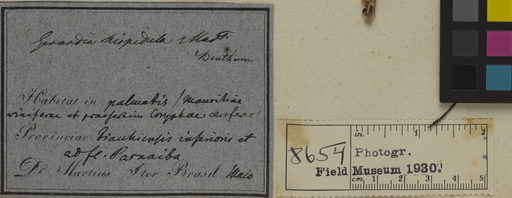 Gerardia hispidula Mart.
Benthum
Habitat in palmetis /Mauritiae
viniferae et praesertim Coryphae cerferae
Provinciae Piauhiensis inferioris et
ad fl. Parnaiba
Dr Martius Iter Brasil Maio
in 1 2
8654 Photogr.
Field Museum 1930.
cm. 1 2 3 4 5